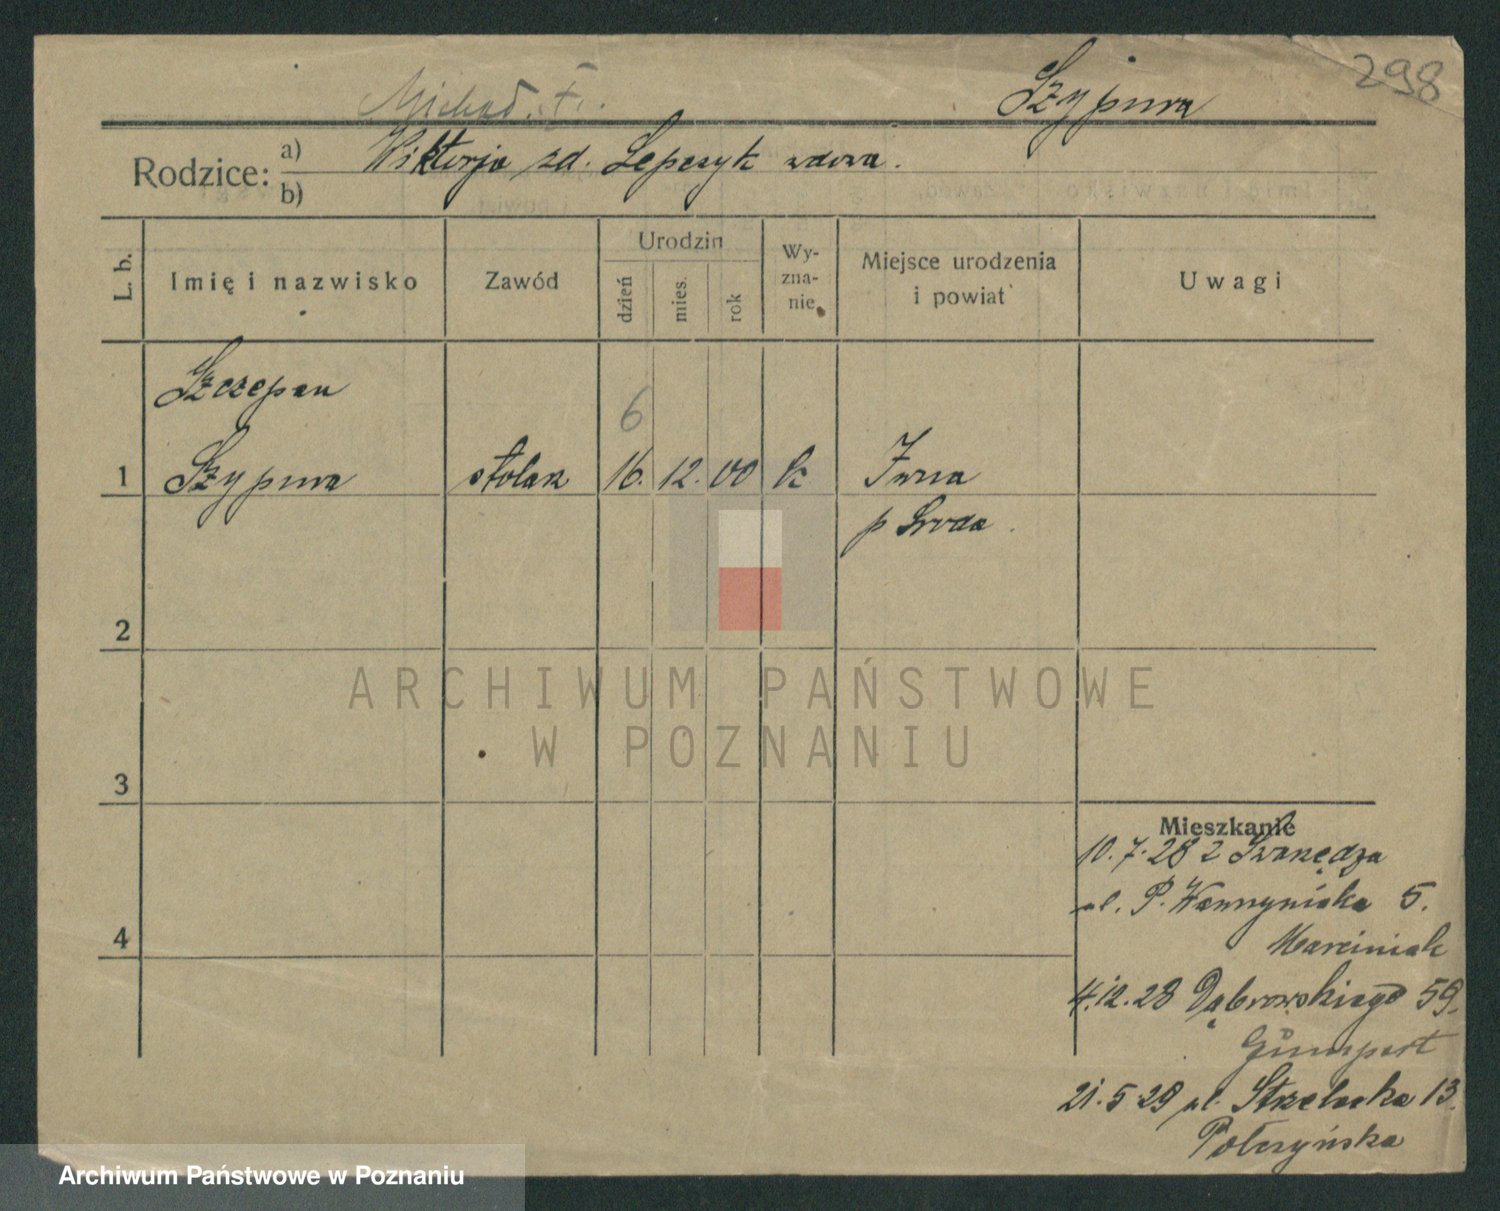 298
Szypura
Michał
Rodzice: a) Wiktorja zd. Lepczyk wdowa.
b)
L. b. Imię i nazwisko Zawód Urodzin dzień mies. rok Wy-zna-nie Miejsce urodzenia i powiat Uwagi
Szczepan
6
1 Szypura stolarz 16. 12. 00 k Iwna
p Środa
2
ARCHIWUM PAŃSTWOWE
W POZNANIU
3
Mieszkanie
10.7.28 z Swarzędza
ul. P. Wawrzyniaka 5.
Marciniak
4.12.28 Dąbrowskiego 59.
4
Gumpert
21.5.29 ul. Strzelecka 13.
Połczyńska
Archiwum Państwowe w Poznaniu